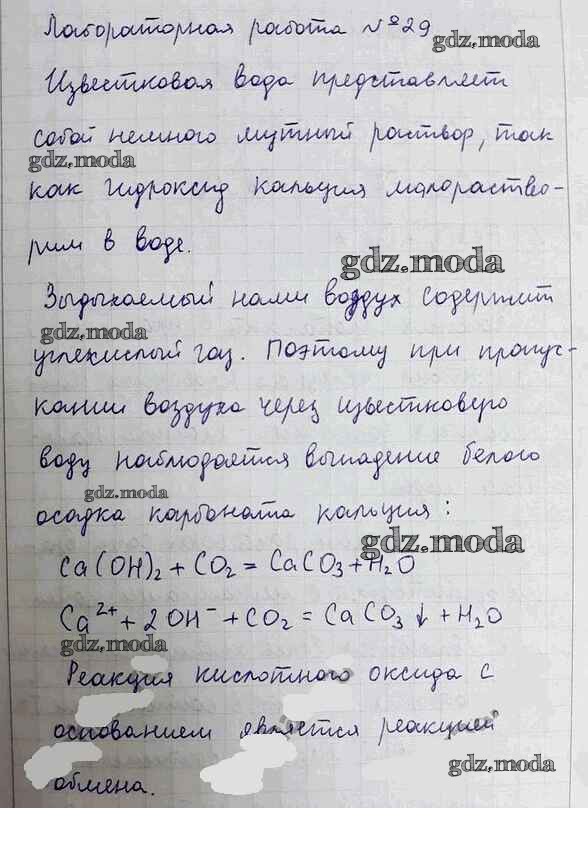 Лабораторная работа №29
gdz.moda
Известковая вода представляет
собой немного мутный раствор, так
gdz.moda
как гидроксид кальция малораство-
рим в воде.
gdz.moda
Выдыхаемый нами воздух содержит
gdz.moda
углекислый газ. Поэтому при пропус-
кании воздуха через известковую
воду наблюдается выпадение белого
gdz.moda
осадка карбоната кальция:
gdz.moda
Ca(OH)₂ + CO₂ = CaCO₃ + H₂O
Ca²⁺ + 2OH⁻ + CO₂ = CaCO₃↓ + H₂O
gdz.moda
Реакция кислотного оксида с
основанием является реакцией
gdz.moda
обмена.